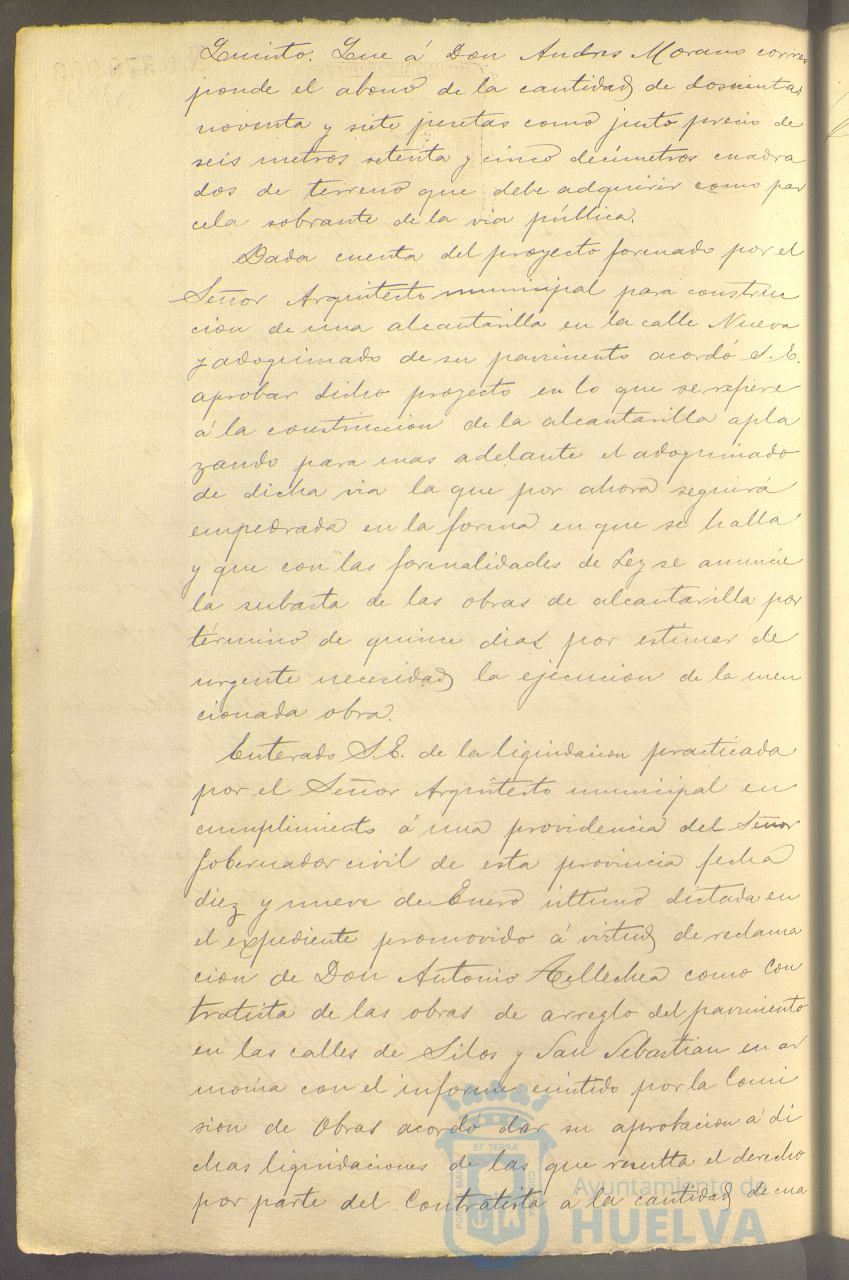 Quinto. Que á Don Andres Morano corres
ponde el abono de la cantidad de doscientas
noventa y siete pesetas como justo precio de
seis metros setenta y cinco decimetros cuadra
dos de terreno que debe adquirir como par
cela sobrante de la via pública.
Dada cuenta del proyecto formado por el
Señor Arquitecto municipal para construc
cion de una alcantarilla en la calle Nueva
y adoquinado de su pavimento acordó S. E.
aprobar dicho proyecto en lo que se refiere
á la construccion de la alcantarilla apla
zando para mas adelante el adoquinado
de dicha via la que por ahora seguirá
empedrada en la forma en que se halla
y que con las formalidades de Ley se anuncie
la subasta de las obras de alcantarilla por
término de quince dias por estimar de
urgente necesidad la ejecucion de la men
cionada obra.
Enterado S. E. de la liquidacion practicada
por el Señor Arquitecto municipal en
cumplimiento á una providencia del Señor
Gobernador civil de esta provincia fecha
diez y nueve de Enero último dictada en
el expediente promovido á virtud de reclama
cion de Don Antonio Tellechea como Con
tratista de las obras de arreglo del pavimento
en las calles de Silos y San Sebastian en ar
monia con el informe emitido por la Comi
sion de Obras acordó dar su aprobacion á di
chas liquidaciones de las que resulta el derecho
por parte del Contratista a la cantidad de cua
Ayuntamiento de
HUELVA